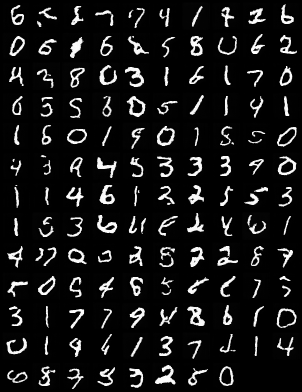 6 5 8 7 7 4 1 9 2 6
0 5 1 6 2 5 8 0 6 2
4 2 8 0 3 1 6 1 7 0
6 3 5 8 0 5 1 1 9 1
1 6 0 1 9 0 1 8 5 0
4 3 9 4 5 3 3 3 9 0
1 1 4 6 1 2 2 5 5 3
1 5 3 6 4 8 2 4 0 1
4 7 0 0 2 8 2 2 8 7
5 0 5 4 8 5 6 6 7 3
3 1 7 7 9 4 8 6 1 0
0 1 9 6 1 3 7 2 1 4
6 8 7 9 3 2 8 0